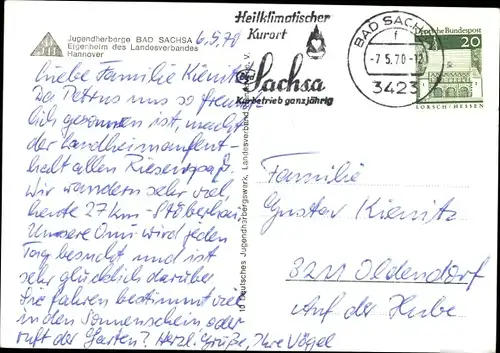 Jugendherberge BAD SACHSA
Eigenheim des Landesverbandes
Hannover
6.5.70
Liebe Familie Kienitz
Da Petrus uns so freund-
lich gesonnen ist, macht
der Landheimaufent-
halt allen Riesenspaß.
Wir wandern sehr viel,
heute 27 km - Stöberhai.
Unsere Omi wird jeden
Tag besucht und ist
sehr glücklich darüber
Sie fahren bestimmt viel
in den Sonnenschein oder
ruft der Garten? Herzl. Grüße, Ihre Vögel
10 Deutsches Jugendherbergswerk, Landesverband e. V.
Heilklimatischer
Kurort
Bad Sachsa
Kurbetrieb ganzjährig
BAD SACHSA
f
-7.5.70-12
3423
Deutsche Bundespost
20
LORSCH/HESSEN
Familie
Gustav Kienitz
3211 Oldendorf
Auf der Hube